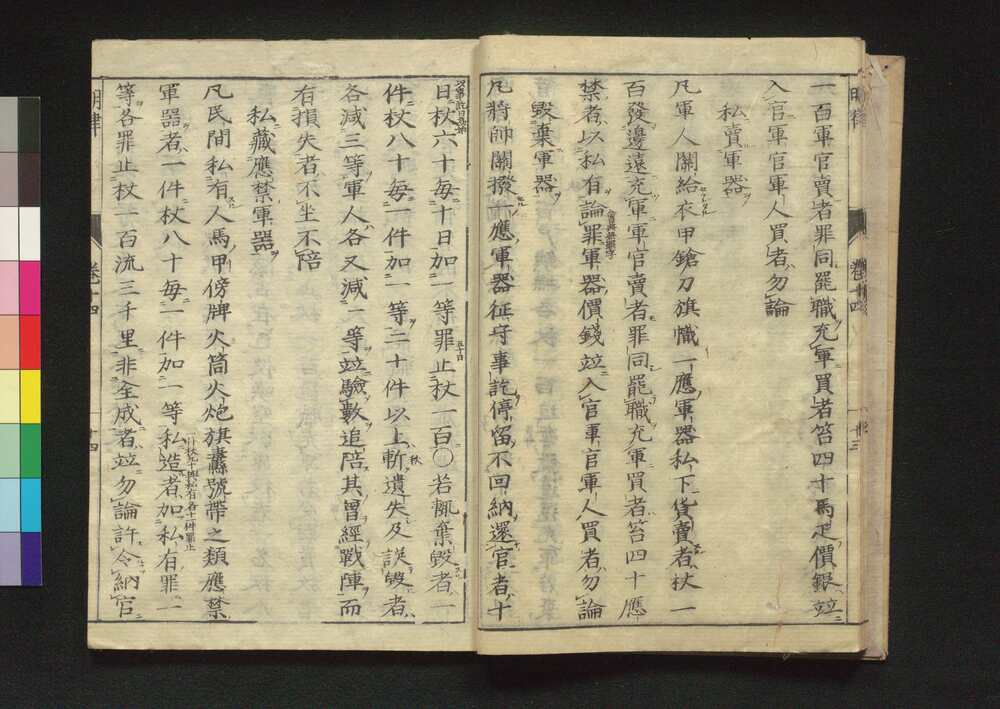 明律
卷十四
廿三
一百軍官賣者罪同罷職充軍買者笞四十馬疋價銀竝
入官軍官軍人買者勿論
私賣軍器
凡軍人關給衣甲鎗刀旗幟一應軍器私下貨賣者杖一
百發邊遠充軍軍官賣者罪同罷職充軍買者笞四十應
禁者以私有論罪軍器價錢竝入官軍官軍人買者勿論
毀棄軍器
凡將帥關撥一應軍器征守事訖停留不回納還官者十
日杖六十每十日加一等罪止杖一百○若輒棄毀者一
件杖八十每一件加一等二十件以上斬遺失及誤毀者
各減三等軍人各又減一等竝驗數追陪其曾經戰陣而
有損失者不坐不陪
私藏應禁軍器
凡民間私有人馬甲傍牌火筒火炮旗纛號帶之類應禁
軍器者一件杖八十每一件加一等私造者加私有罪一
等各罪止杖一百流三千里非全成者竝勿論許令納官
明律
卷十四
十四